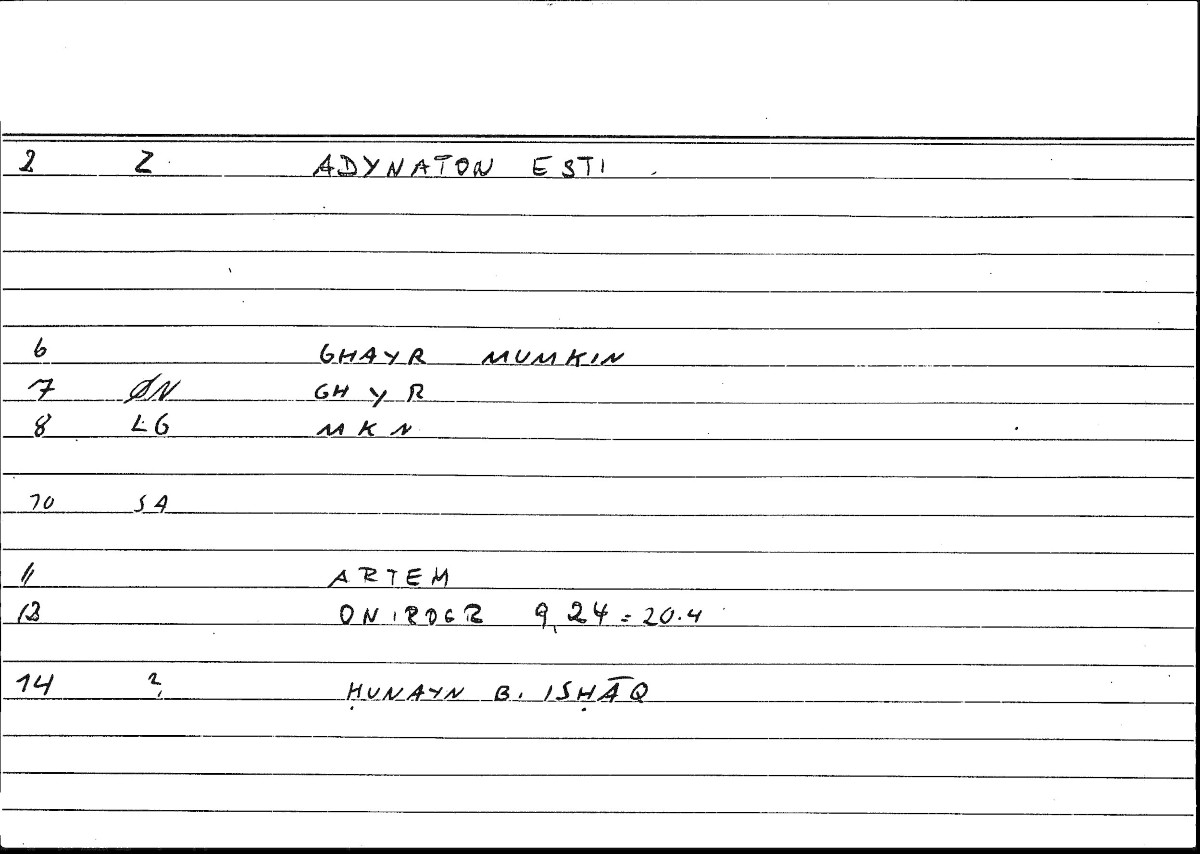 2 Z ADYNATON ESTI
6 GHAYR MUMKIN
7 ØN GH Y R
8 LG M K N
10 SA
11 ARTEM
13 ONIROCR 9,24 = 20.4
14 ? ḤUNAYN B. ISḤĀQ